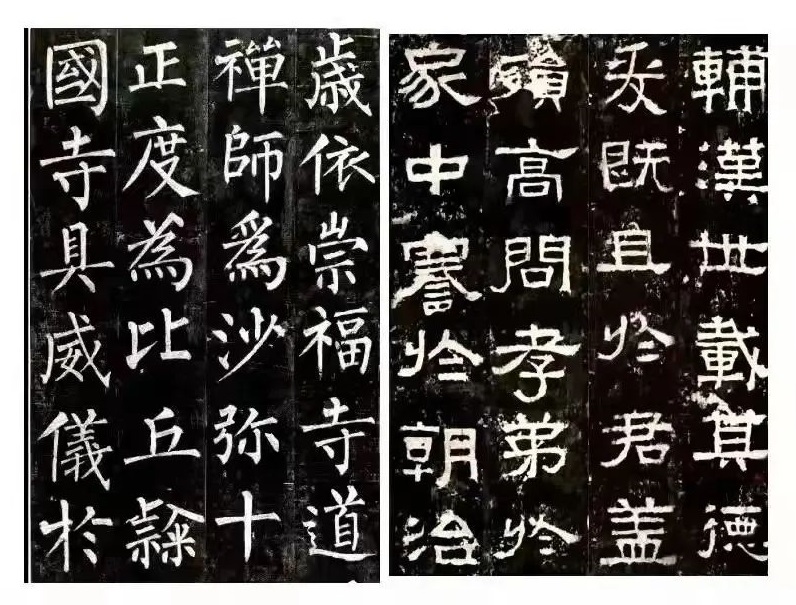 輔漢世載其德
爰既且於君盖
殞高問孝弟於
家中謇於朝治
歲依崇福寺道
禪師爲沙弥十
正度為比丘隸
國寺具威儀於